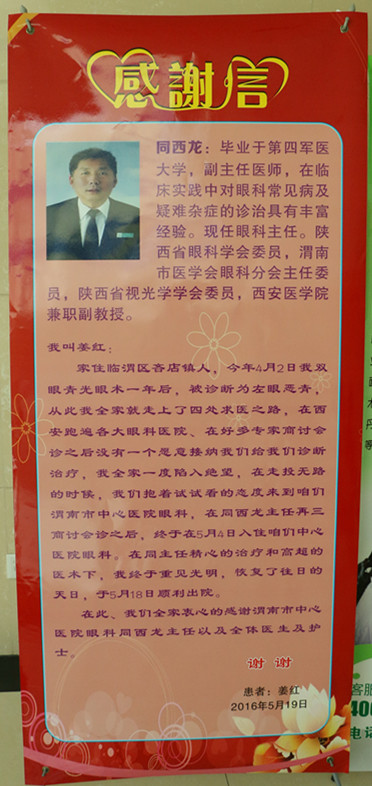 感謝信
同西龙：毕业于第四军医
大学，副主任医师，在临
床实践中对眼科常见病及
疑难杂症的诊治具有丰富
经验。现任眼科主任。陕
西省眼科学会委员，渭南
市医学会眼科分会主任委
员，陕西省视光学学会委员，西安医学院
兼职副教授。
我叫姜红：
家住临渭区吝店镇人，今年4月2日我双
眼青光眼术一年后，被诊断为左眼恶青，
从此我全家就走上了四处求医之路，在西
安跑遍各大眼科医院、在好多专家商讨会
诊之后没有一个愿意接纳我们给我们诊断
治疗，我全家一度陷入绝望，在走投无路
的时候，我们抱着试试看的态度来到咱们
渭南市中心医院眼科，在同西龙主任再三
商讨会诊之后，终于在5月4日入住咱们中心
医院眼科。在同主任精心的治疗和高超的
医术下，我终于重见光明，恢复了往日的
天日，于5月18日顺利出院。
在此、我们全家衷心的感谢渭南市中心
医院眼科同西龙主任以及全体医生及护
士。
谢谢
患者：姜红
2016年5月19日
客服
400
电话